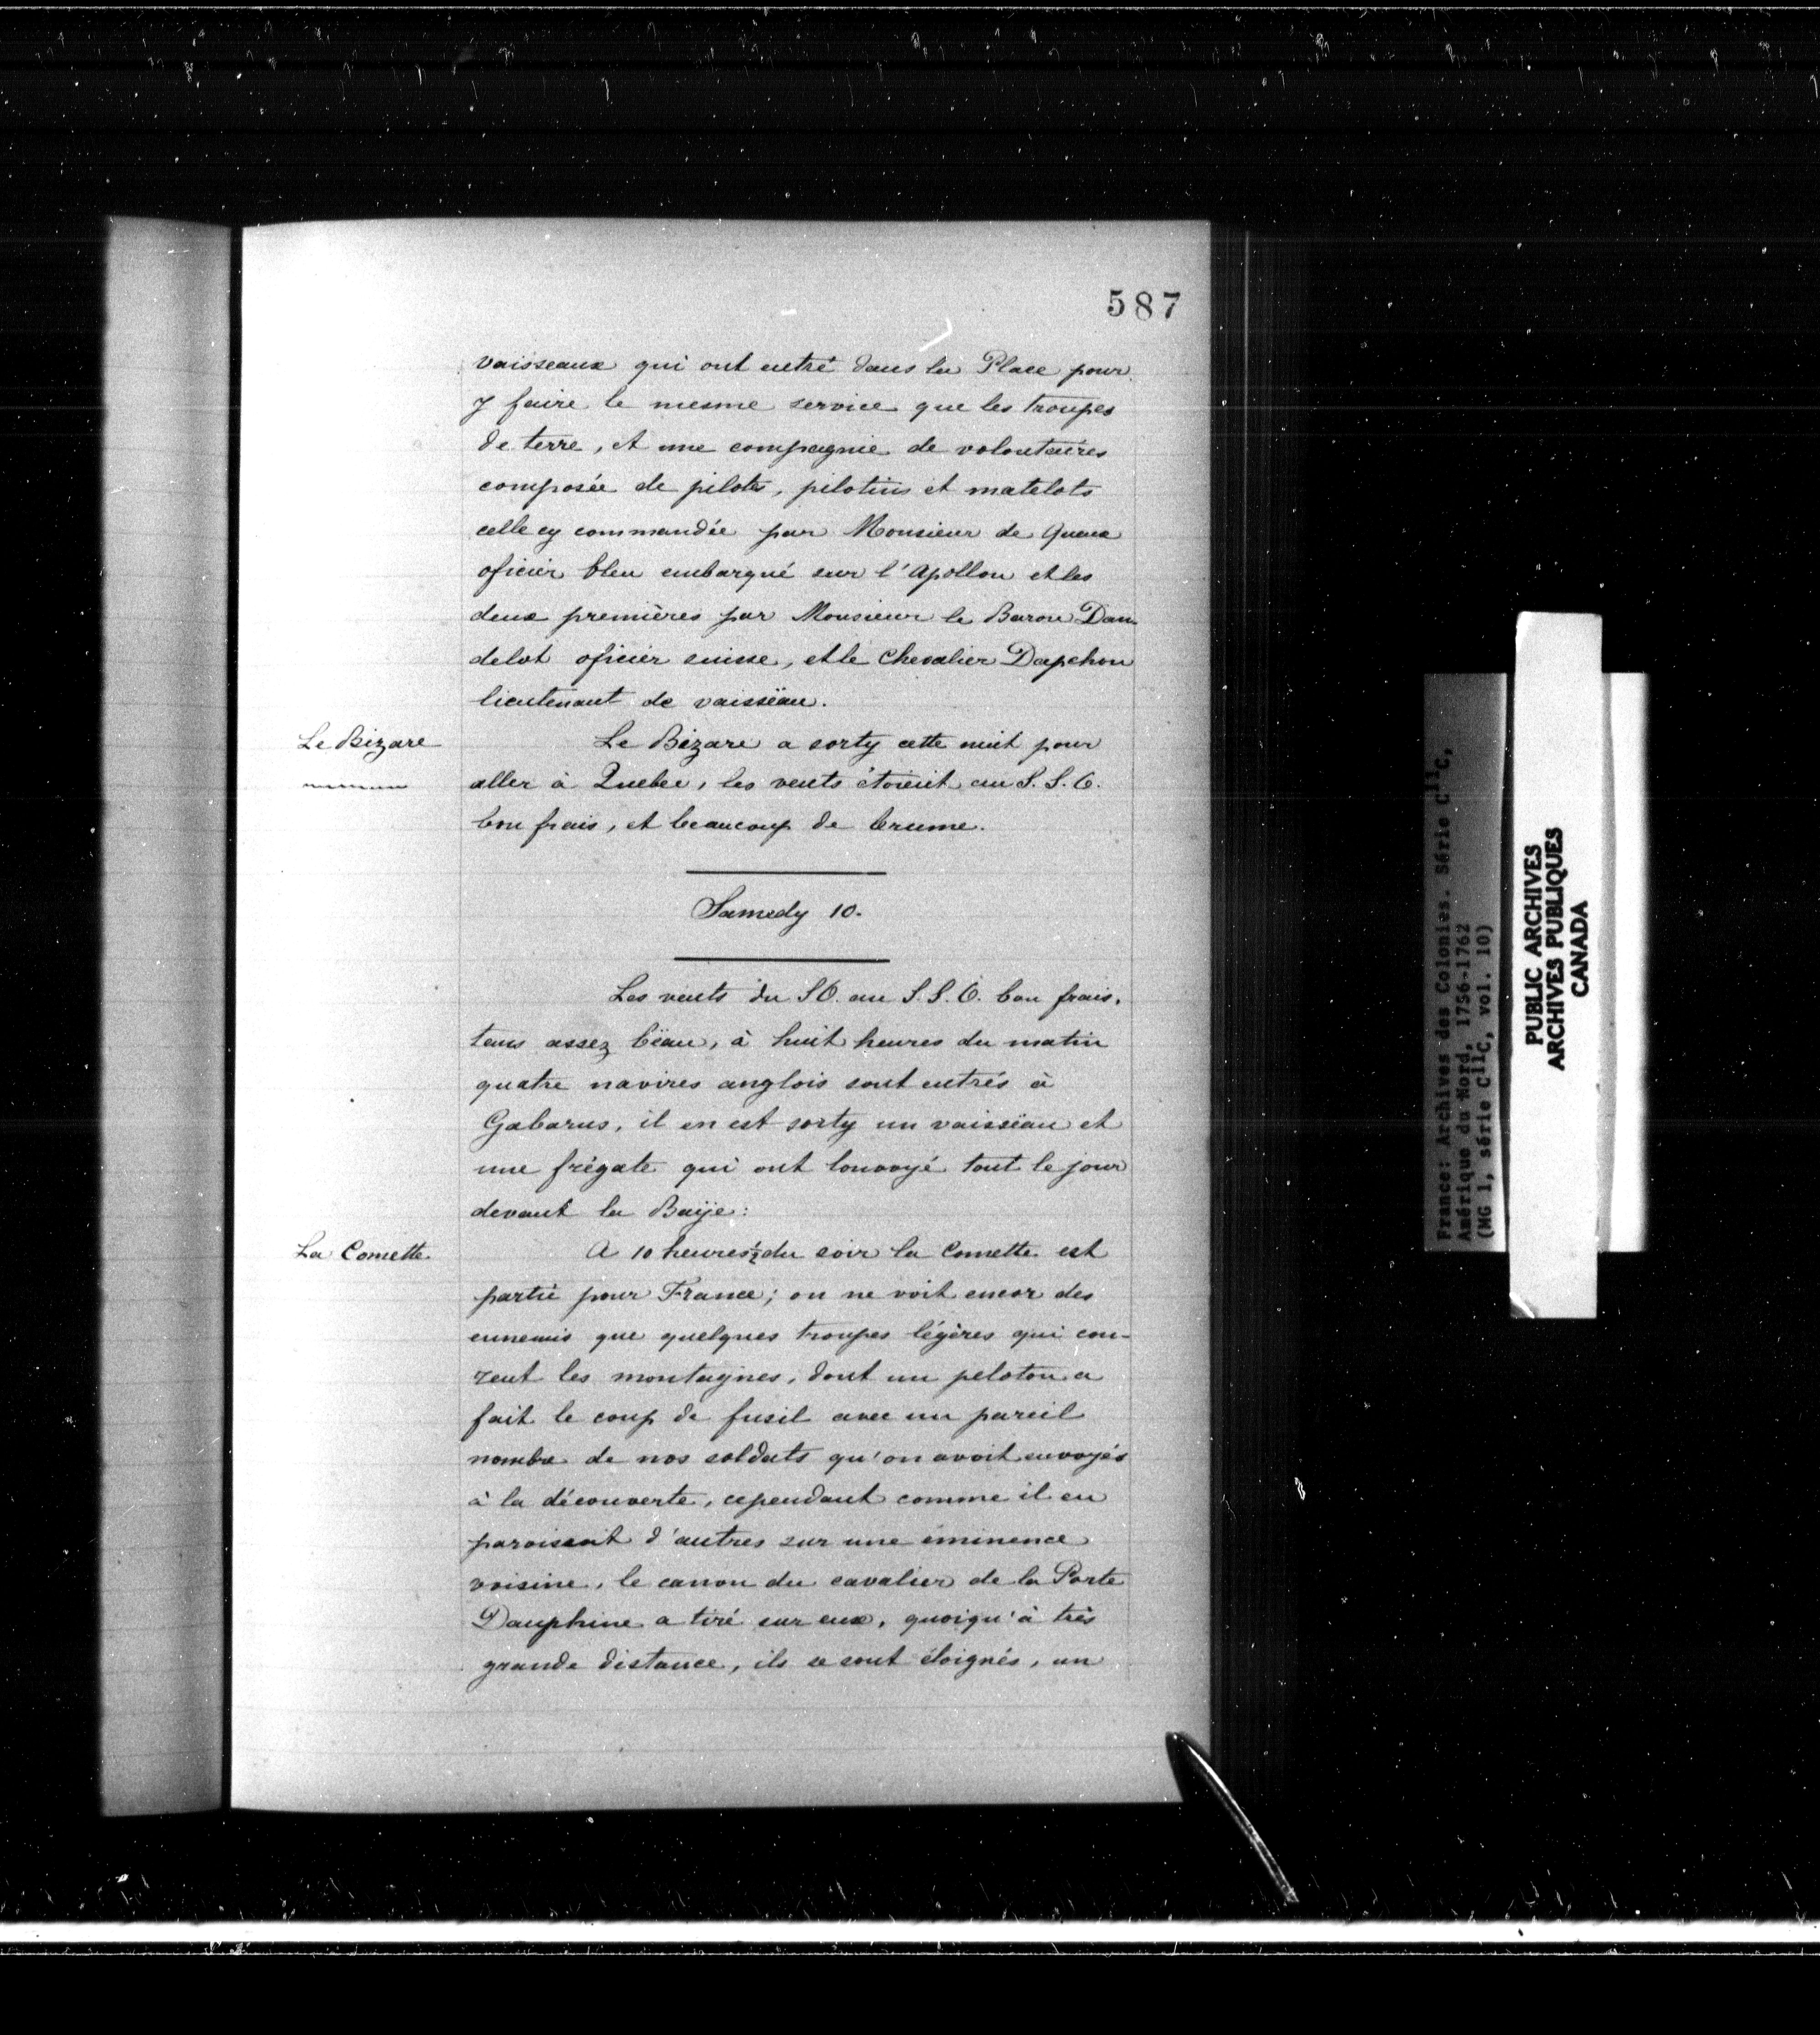 587
vaisseaux qui ont entré dans la Place pour
y faire le mesme service que les troupes
de terre, et une compagnie de volontaires
composée de pilotes, pilotins et matelots
celle cy commandée par Monsieur de Queux
oficier bleu embarqué sur l'Apollon et les
deux premières par Monsieur le Baron Dan-
delot oficier suisse, et le Chevalier Dapchon
lieutenant de vaisseau.
Le Bizare
Le Bizare a sorty cette nuit pour
aller à Quebec, les vents étoient au S. S. O.
bon frais, et beaucoup de brume.
Samedy 10.
Les vents du SO. au S. S. O. bon frais,
tems assez béau, à huit heures du matin
quatre navires anglois sont entrés à
Gabarus, il en est sorty un vaisseau et
une frégate qui ont louvoyé tout le jour
devant la Baÿe:
La Comette
A 10 heures ½ du soir la Comette est
partie pour France; on ne voit encor des
ennemis que quelques troupes légères qui cou-
rent les montagnes, dont un peloton a
fait le coup de fusil avec un pareil
nombre de nos soldats qu'on avoit envoyés
à la découverte, cependant comme il en
paroissoit d'autres sur une éminence
voisine, le canon du cavalier de la Porte
Dauphine a tiré sur eux, quoiqu'à très
grande distance, ils se sont éloignés, un
France: Archives des Colonies. Série C11C,
Amérique du Nord, 1756-1762
(MG 1, série C11C, vol. 10)
PUBLIC ARCHIVES
ARCHIVES PUBLIQUES
CANADA